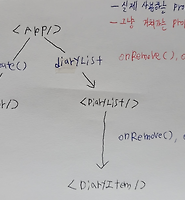 - 실제 사용하는 Pro
- 그냥 거쳐가는 Prop
<App/>
onRemove(), o
eate()
diaryList
r/>
<DiaryList/>
onRemove(),
<DiaryItem/>